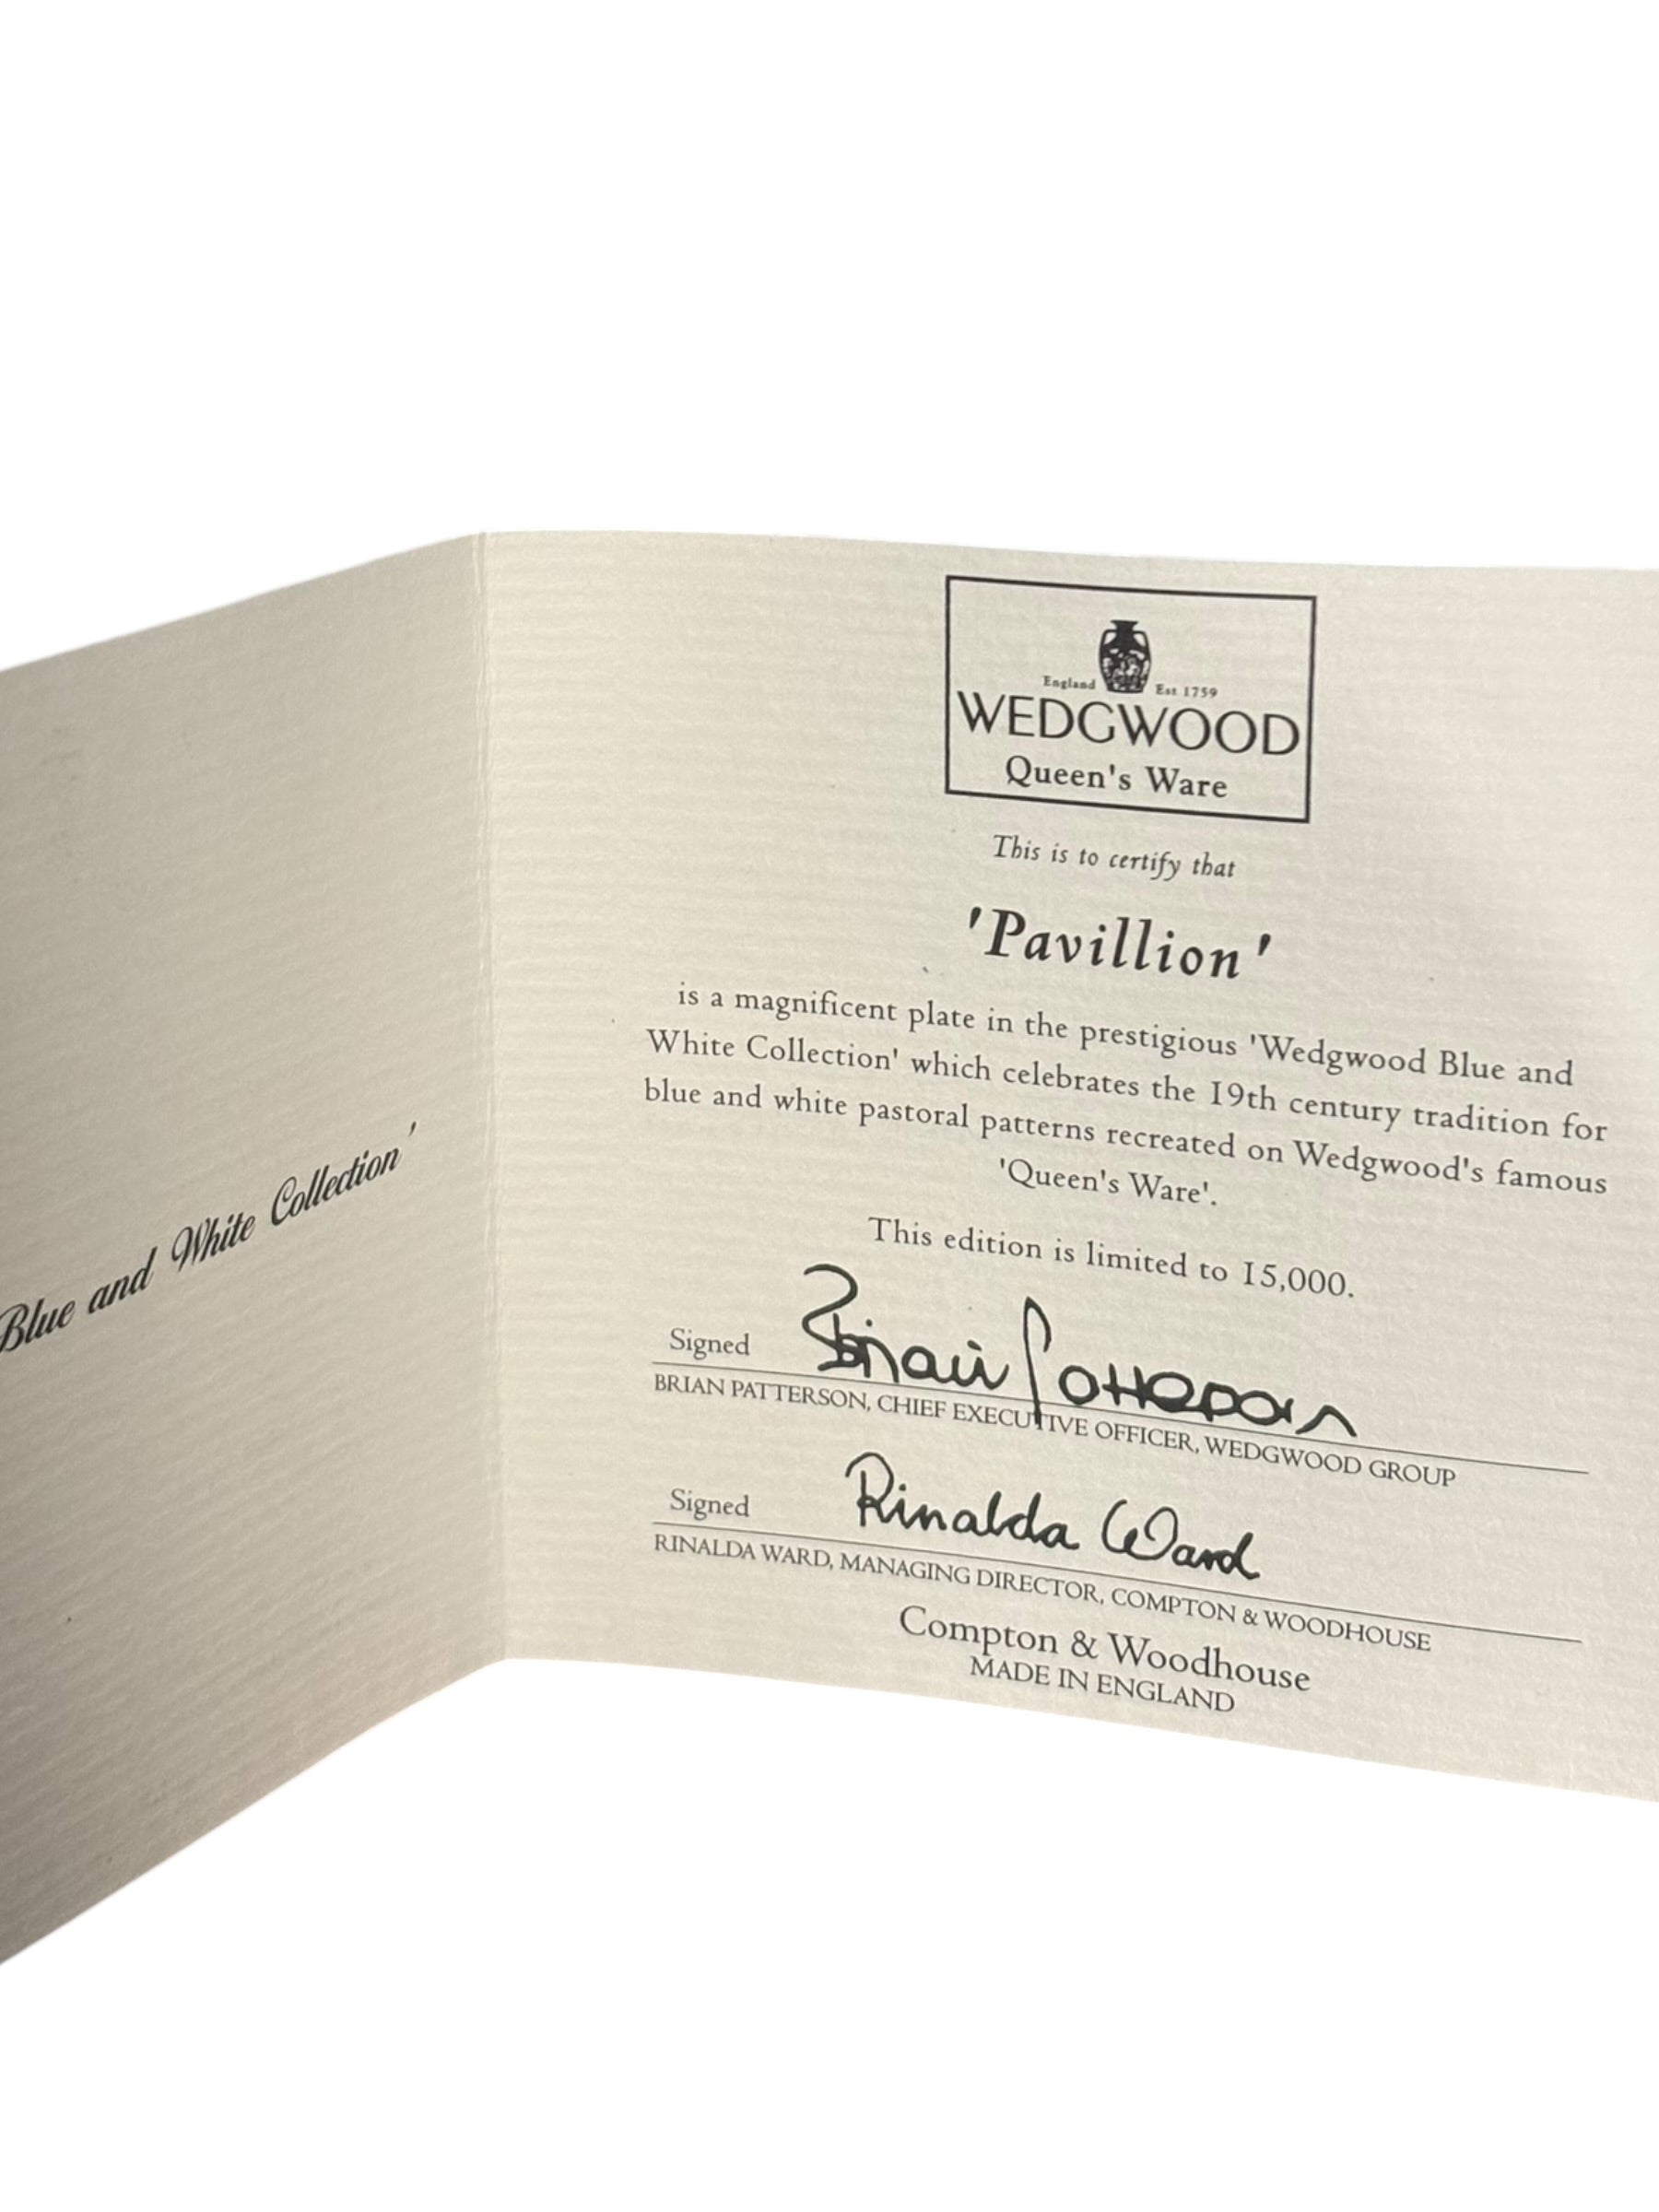 Blue and White Collection'
England Est 1759
WEDGWOOD
Queen's Ware
This is to certify that
'Pavillion'
is a magnificent plate in the prestigious 'Wedgwood Blue and
White Collection' which celebrates the 19th century tradition for
blue and white pastoral patterns recreated on Wedgwood's famous
'Queen's Ware'.
This edition is limited to 15,000.
Signed Brian Patterson
BRIAN PATTERSON, CHIEF EXECUTIVE OFFICER, WEDGWOOD GROUP
Signed Rinalda Ward
RINALDA WARD, MANAGING DIRECTOR, COMPTON & WOODHOUSE
Compton & Woodhouse
MADE IN ENGLAND